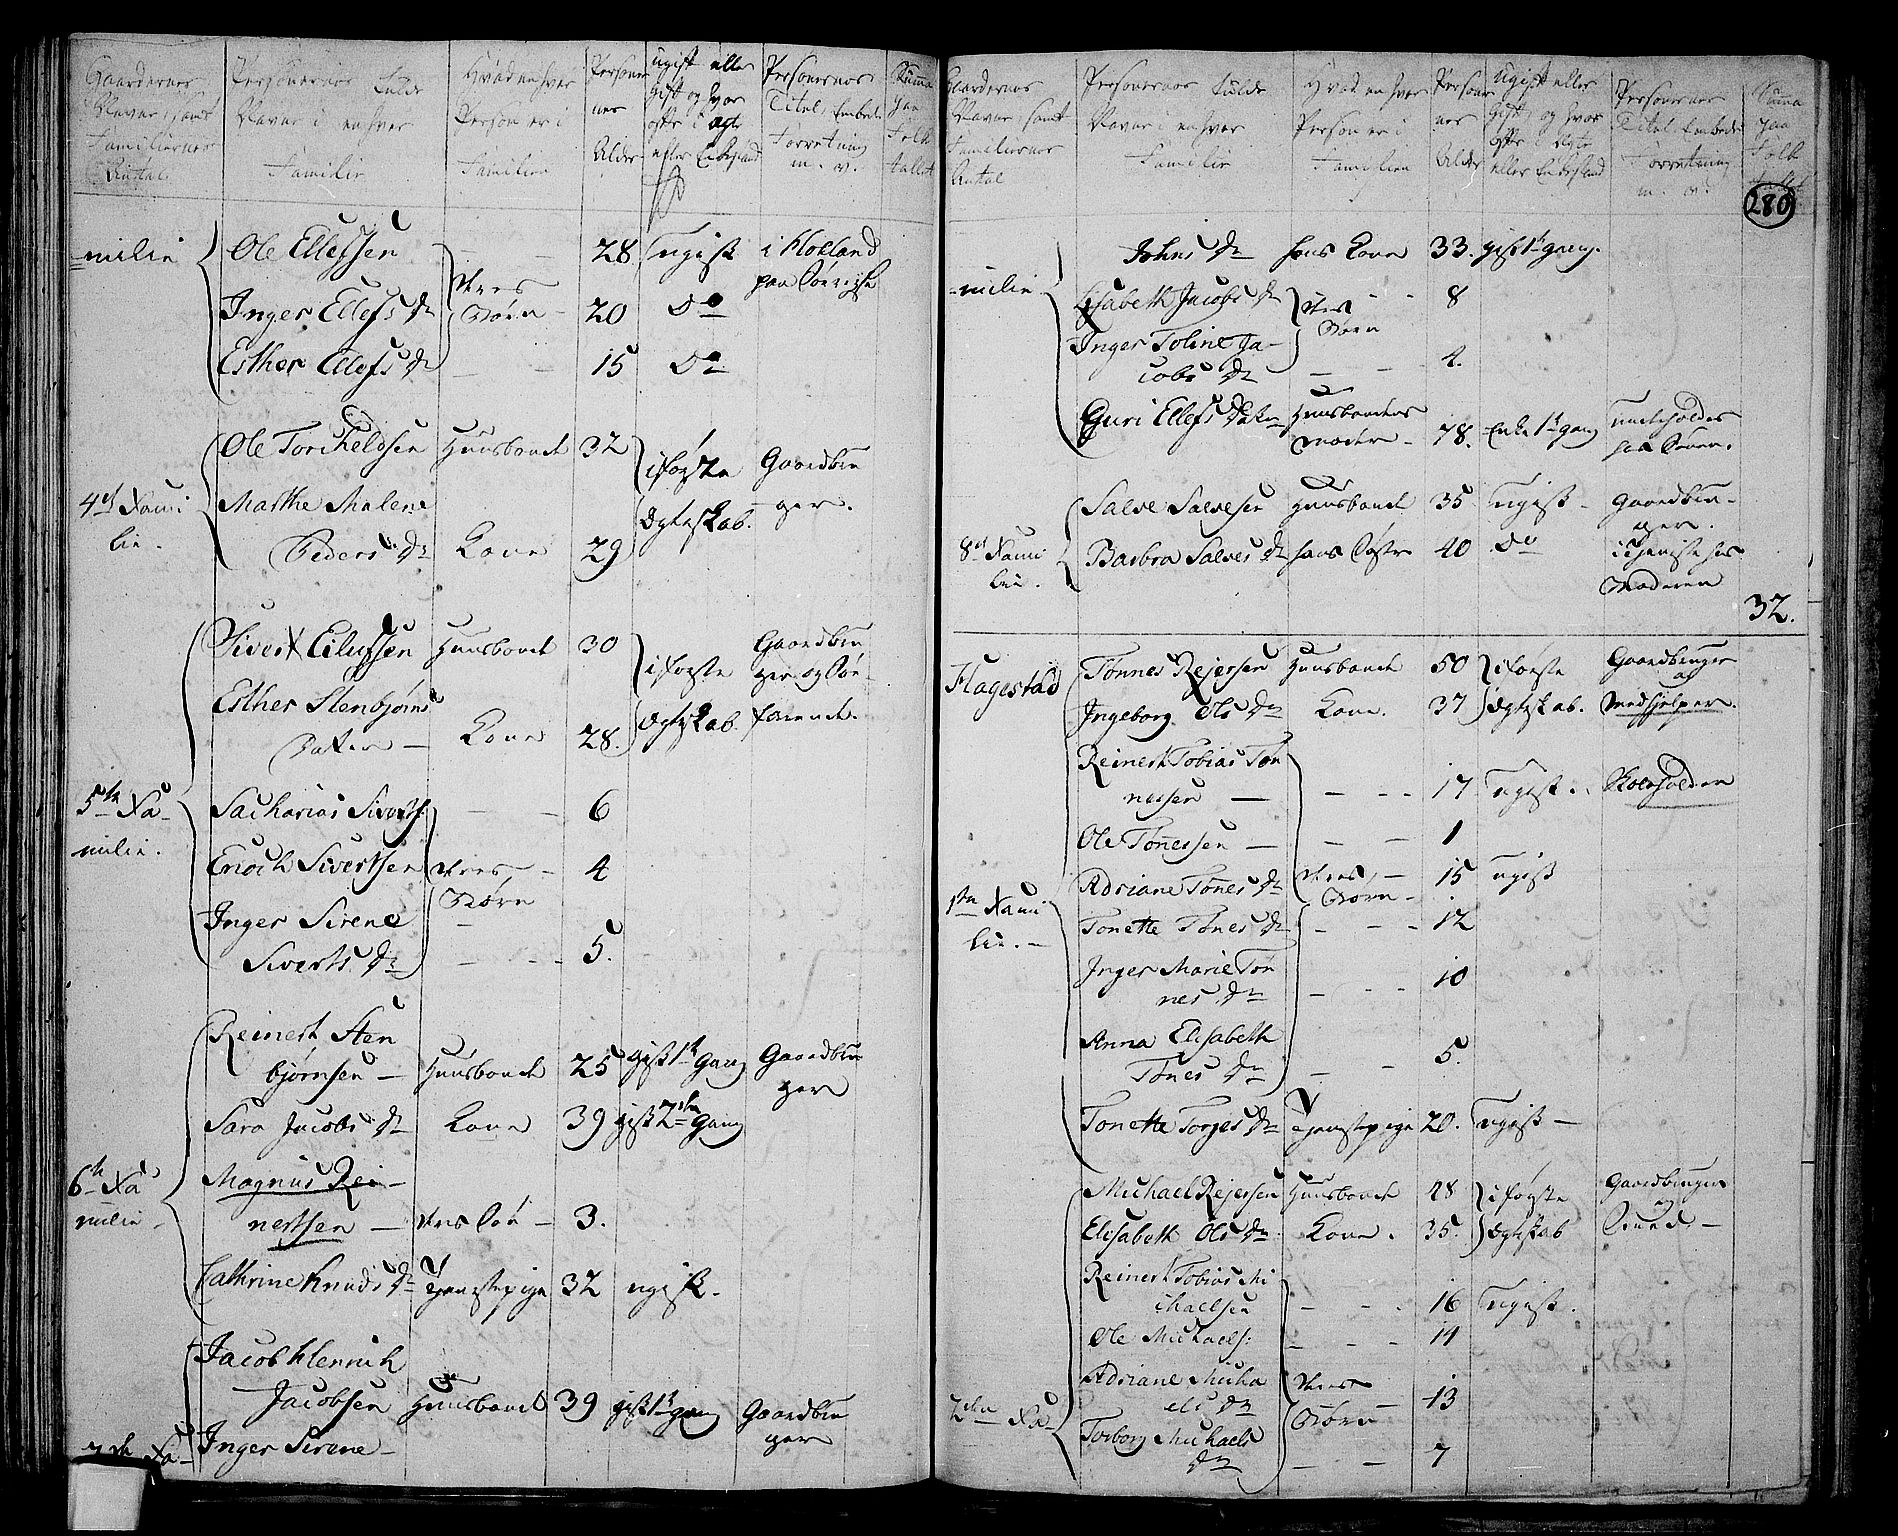 Gaardernes Navne, samt Familiernes Antal
Personernes fulde Navne i enhver Familie
Hvad enhver Person er i Familien
Personernes Alder
Ugift eller Gift, og hvor ofte i Ægte eller Enkestand
Personernes Titel, Embede Forretning m. v.
Summa paa Folketallet
=milie
Ole Ellefsen - 28 Ugift i Holland paa Søereise
Inger Ellefs Dr deres Børn 20 Do
Esther Ellefs Dr - 15 Do
4de Fami
lie.
Ole Torcheldsen Huusbonde 32 i første Gaardbru
Marthe Malene Ægteskab. ger.
Peders Dr Kone 29
5te Fa-
milie.
Sivert Eilufsen Huusbonde 30 i første Gaardbru
Esther Stenbjørns ger og Søe-
Datter - Kone 28. Ægteskab. farende.
Sacharias Siverts: - - 6
Enoch Sivertsen deres - 4
Inger Sirene Børn
Siverts Dr - - - 5.
6te Fa
milie -
Reinert Sten
bjørnsen - Huusbonde 25 gift 1te Gang Gaardbru
ger
Sara Jacobs Dr Kone 39 gift 2den Gang
Magnus Rei-
nertsen - deres Søn - 3.
Cathrine Knuds Dr Tjenestepige 32 ugift.
Jacob Henrich
Jacobsen Huusbonde 39 gift 1te gang Gaardbru
ger
7de Fa- Inger Sirene -
Gaardernes Navne, samt Familiernes Antal
Personernes fulde Navne i enhver Familie
Hvad enhver Person er i Familien
Personernes Alder
Ugift eller Gift, og hvor ofte i Ægte eller Enkestand
Personernes Titel Embede Forretning m. v.
Summa paa Folketallet
280
=milie
Johns Dr hans Kone 33. gift 1te gang.
Lisabeth Jacobs Dr deres - - 8
Inger Toline Ja- Børn
cobs Dr - - - 4.
Guri Ellefs Datter Huusbondens underholdes
Moder - 78. Enke 1te gang hos Sønnen.
8de Fami
lie.
Salve Salvesen Huusbonde 35 Ugift - Gaardbru-
ger.
Barbra Salves Dr hans Søster 40 Do i Tjeniste hos
Broderen
32.
Flagestad
Tønnes Rejersen Huusbonde 50 i første Gaardbruger
Ingeborg Ols Dr Kone. 37 Ægteskab. og Medhjelper.
1ste Fami
lie. -
Reinert Tobias Tøn
nessen - - - - 17 Ugift .. Skoeholder
Ole Tønessen - - - 1
Adriane Tønes Dr deres - 15 ugift
Tonette Tønes Dr Børn - 12
Inger Marie Tøn
nes Dr - - 10
Anna Elisabeth
Tønes Dr - - 5.
Tonette Torges Dr Tjenestepige 20. Ugift -
2den Fa-
Michael Rejersen Huusbonde 48 i første Gaardbruger
Elisabeth Ols Dr Kone. 35. Ægteskab
Reinert Tobias Mi
chaelsen - - . 16 Ugift.
Ole Michaels: - - - 14
Adriane Micha deres
els Dr Børn - 13
Torborg Michaels
Dr - - - 7